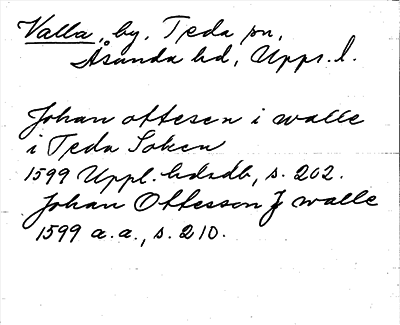 Valla, by, Teda sn,
Åsunda hd, Upps. l.
Johan ottesen i walle
i Teda Soken
1599 Uppl. hdrdb, s. 202.
Johan Ottesson J walle
1599 a.a., s. 210.